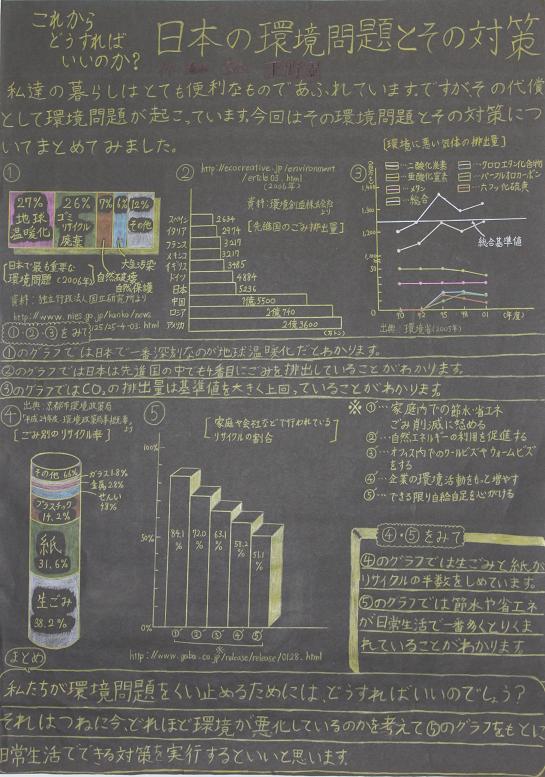 これから
どうすれば
いいのか?
日本の環境問題とその対策
私達の暮らしはとても便利なものであふれています。ですが、その代償
として環境問題が起こっています。今回はその環境問題とその対策につ
いてまとめてみました。
①
27%
地球
温暖化
26%
ゴミ
リサイクル
廃棄
7%
6%
12%
その他
大気汚染
自然破壊
自然保護
[日本で最も重要な
環境問題(2006年)]
資料:独立行政法人国立研究所より
http://www.nies.go.jp/kanko/news
/25/25-4-03.html
②
http://ecocreative.jp/environment
(2006年)
資料:環境創造株式会社
より
[先進国のごみ排出量]
スペイン 2634
イタリア 2974
フランス 3217
メキシコ 3217
イギリス 3485
ドイツ 4884
日本 5236
中国 1億5500
ロシア 2億740
アメリカ 2億3600
(万トン)
③
[環境に悪い気体の排出量]
…二酸化炭素
…亜酸化窒素
…メタン
…総合
…パーフルオロカーボン
…六フッ化硫黄
1,400
1,300
1,200
1,100
50
0
総合基準値
90 95 98 01
(年度)
出典:環境省(2003年)
①・②・③をみて
①のグラフでは日本で一番深刻なのが地球温暖化だとわかります。
②のグラフでは日本は先進国の中でも4番目にごみを排出していることがわかります。
③のグラフではCO₂の排出量は基準値を大きく上回っていることがわかります。
④
出典:京都市環境政策局
「平成24年度・環境政策局事業概要」
より
[ごみ別のリサイクル率]
その他 6.6%
ガラス1.8%
金属2.8%
せんい
4.8%
プラスチック
14.2%
紙
31.6%
生ごみ
38.2%
⑤
[家庭や会社などで行われている
リサイクルの割合]
100%
50%
0%
84.1
%
72.0
%
63.1
%
58.2
%
51.1
%
① ② ③ ④ ⑤
※
http://www.goba.co.jp/release/release/0128.html
※①…家庭内での節水・省エネ
ごみ削減に努める
②…自然エネルギーの利用を促進する
③…オフィス内でのクールビズやウォームビズ
をする
④…企業の環境活動をもって増やす
⑤…できる限り自給自足を心がける
④・⑤をみて
④のグラフでは生ごみと紙が
リサイクルの半数をしめています。
⑤のグラフでは節水や省エネ
が日常生活で一番多くとりくま
れていることがわかります。
まとめ
私たちが環境問題をくい止めるためには、どうすればいいのでしょう?
それはつねに今、どれほど環境が悪化しているのかを考えて⑤のグラフをもとに
日常生活でできる対策を実行するといいと思います。